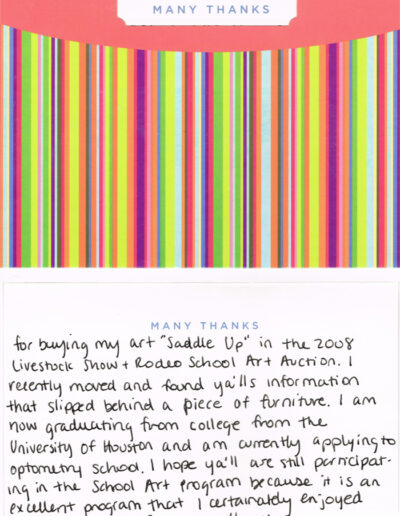 MANY THANKS
MANY THANKS
for buying my art "Saddle Up" in the 2008
Livestock Show + Rodeo School Art Auction. I
recently moved and found ya'lls information
that slipped behind a piece of furniture. I am
now graduating from college from the
University of Houston and am currently applying to
optometry school. I hope ya'll are still participat-
ing in the School Art program because it is an
excellent program that I certainately enjoyed